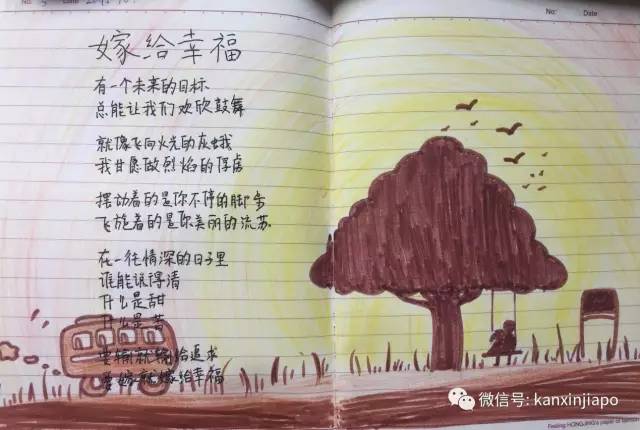 No:
Date
No:
Date
嫁给幸福
有一个未来的目标
总能让我们欢欣鼓舞
就像飞向火光的灰蛾
我甘愿做烈焰的俘虏
摆动着的是你不停的脚步
飞旋着的是你美丽的流苏
在一往情深的日子里
谁能说得清
什么是甜
什么是苦
要嫁就嫁给追求
要嫁就嫁给幸福
微信号: kanxinjiapo